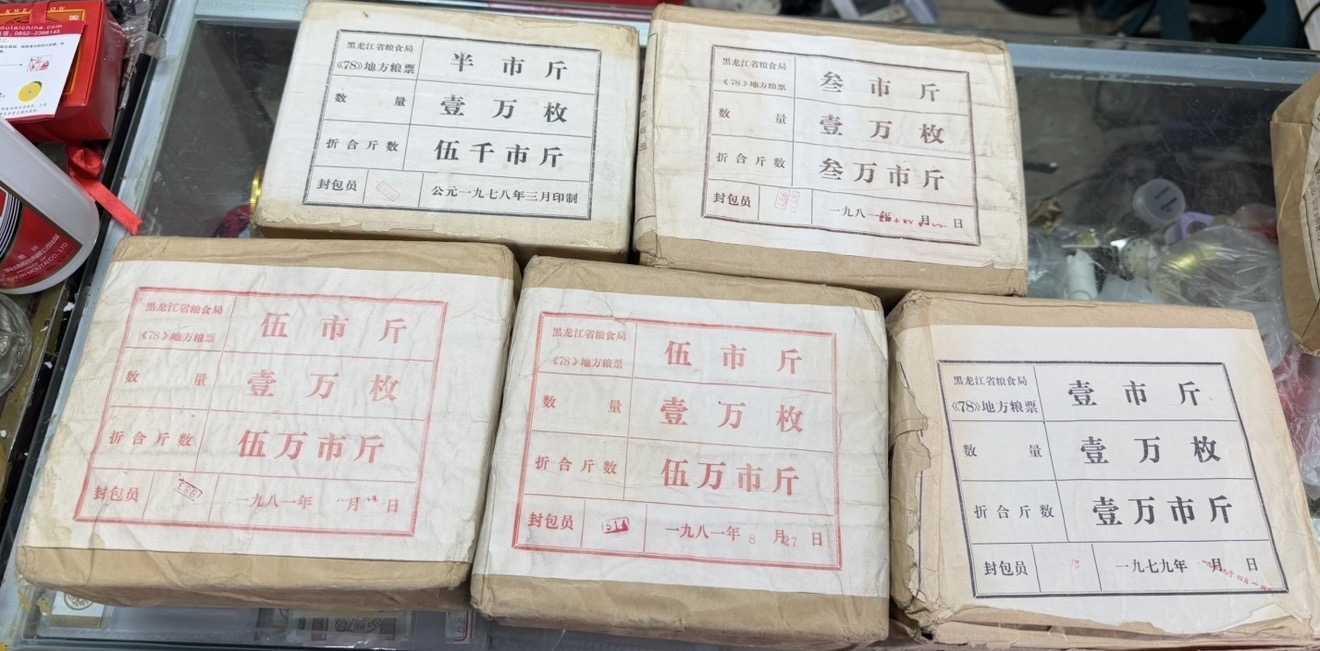 outaichina.com
0852-2386145
黑龙江省粮食局
《78》地方粮票
半市斤
数量
壹万枚
折合斤数
伍千市斤
封包员
公元一九七八年三月印制
黑龙江省粮食局
《78》地方粮票
叁市斤
数量
壹万枚
折合斤数
叁万市斤
封包员
一九八一年 月 日
黑龙江省粮食局
《78》地方粮票
伍市斤
数量
壹万枚
折合斤数
伍万市斤
封包员
一九八一年 月 日
黑龙江省粮食局
《78》地方粮票
伍市斤
数量
壹万枚
折合斤数
伍万市斤
封包员
一九八一年 8 月 27 日
黑龙江省粮食局
《78》地方粮票
壹市斤
数量
壹万枚
折合斤数
壹万市斤
封包员
一九七九年 月 日